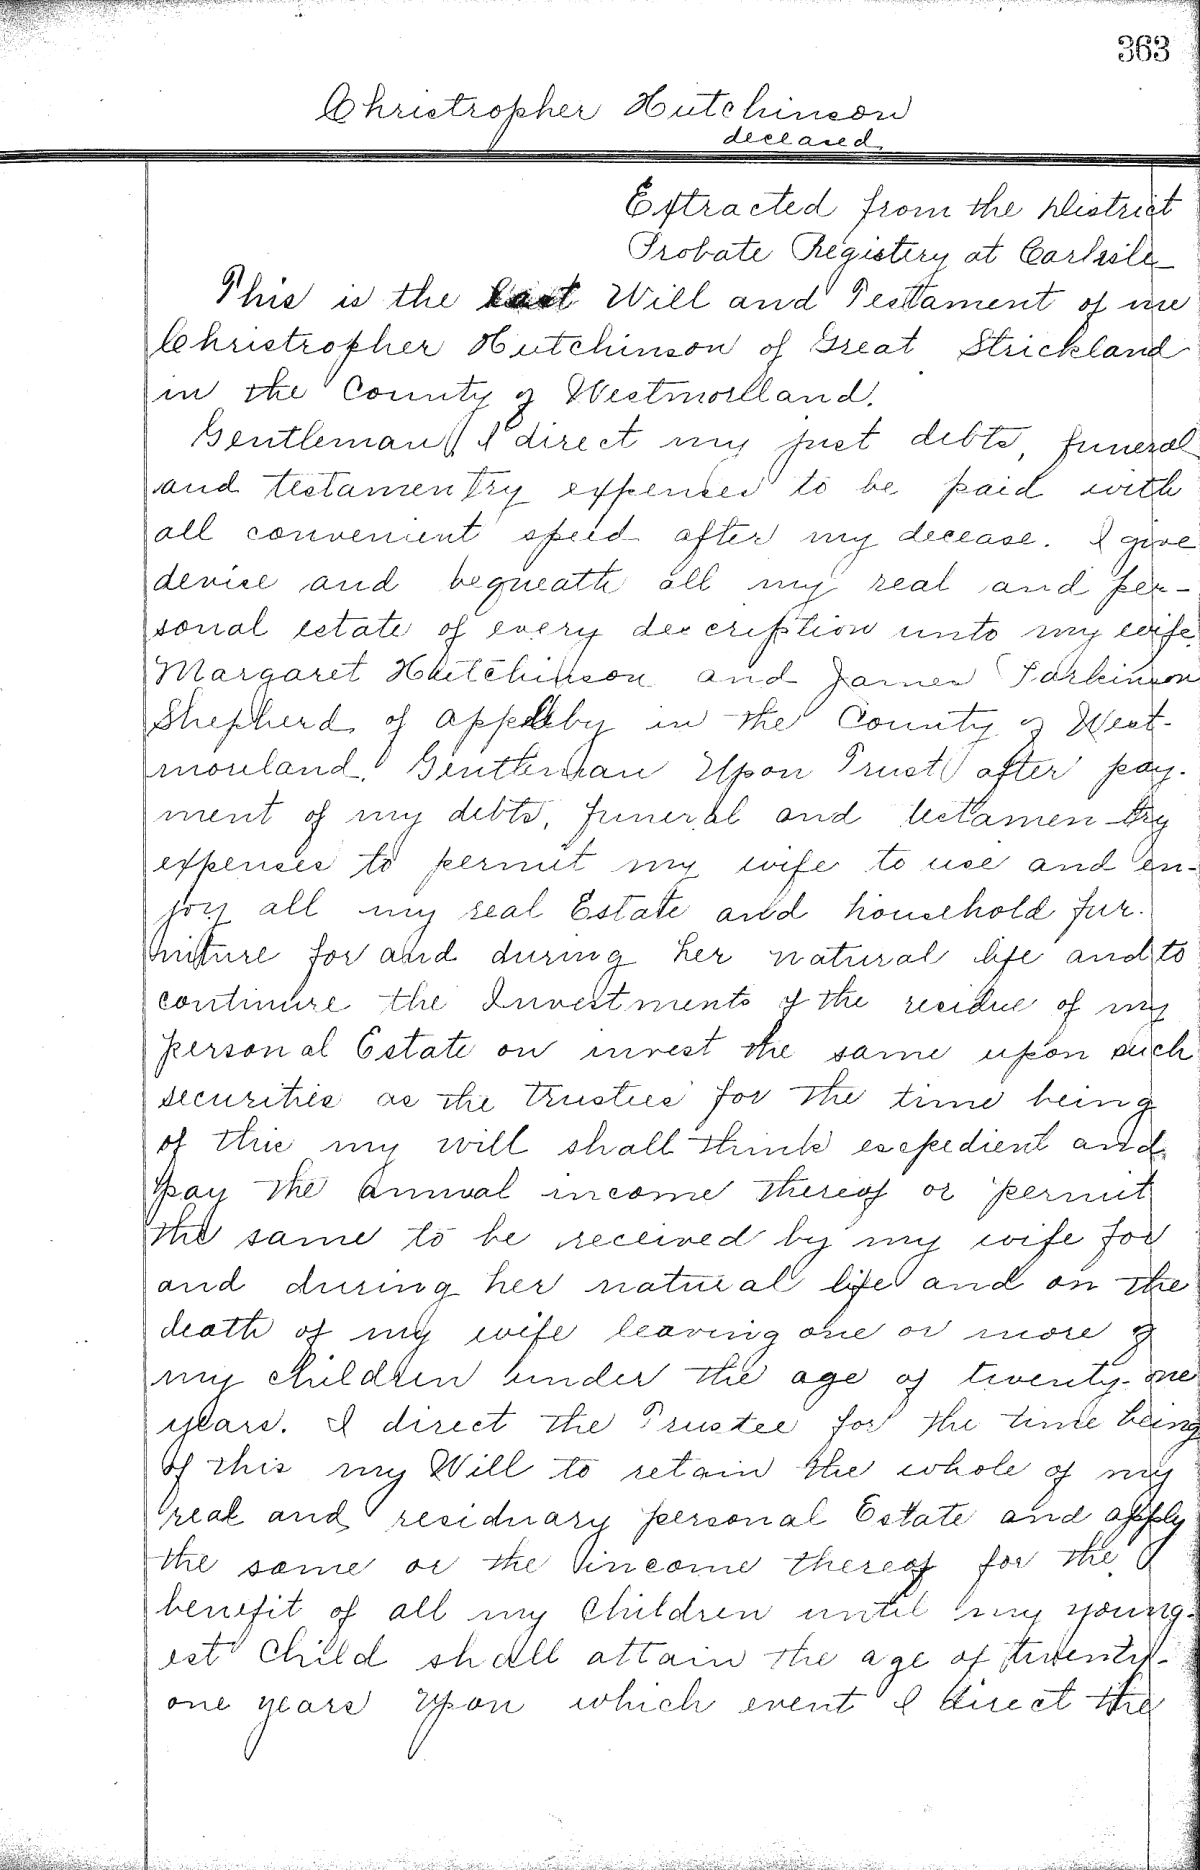 363
Christropher Hutchinson
deceased
Extracted from the District
Probate Registery at Carlisle
This is the last Will and Testament of me
Christropher Hutchinson of Great Strickland
in the County of Westmorelland.
Gentleman I direct my just debts, funeral
and testamentry expenses to be paid with
all convenient speed after my decease. I give
devise and bequeath all my real and per-
sonal estate of every description unto my wife
Margaret Hutchinson and James Parkinson
Shepherd of Appleby in the County of West-
moreland. Gentleman Upon Trust after pay-
ment of my debts, funeral and testamentry
expenses to permit my wife to use and en-
joy all my real Estate and household fur-
niture for and during her natural life and to
continure the Investments of the residue of my
personal Estate on invest the same upon such
securities as the trustees for the time being
of this my will shall think expedient and
pay the annual income thereof or permit
the same to be received by my wife for
and during her natural life and on the
death of my wife leaving one or more of
my children under the age of twenty-one
years. I direct the Trustee for the time being
of this my Will to retain the whole of my
real and residuary personal Estate and apply
the same or the income thereof for the
benefit of all my Children until my young-
est Child shall attain the age of twenty-
one years Upon which event I direct the